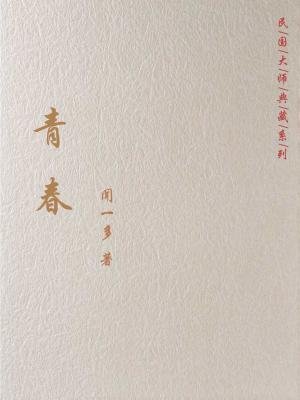 民|国|大|师|典|藏|系|列
青春
闻一多 著